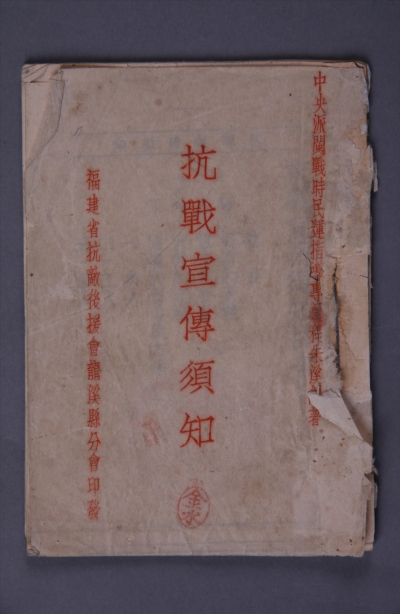 中央派閩戰時民運指導專員
著
抗戰宣傳須知
福建省抗敵後援會龍溪縣分會印發
金水